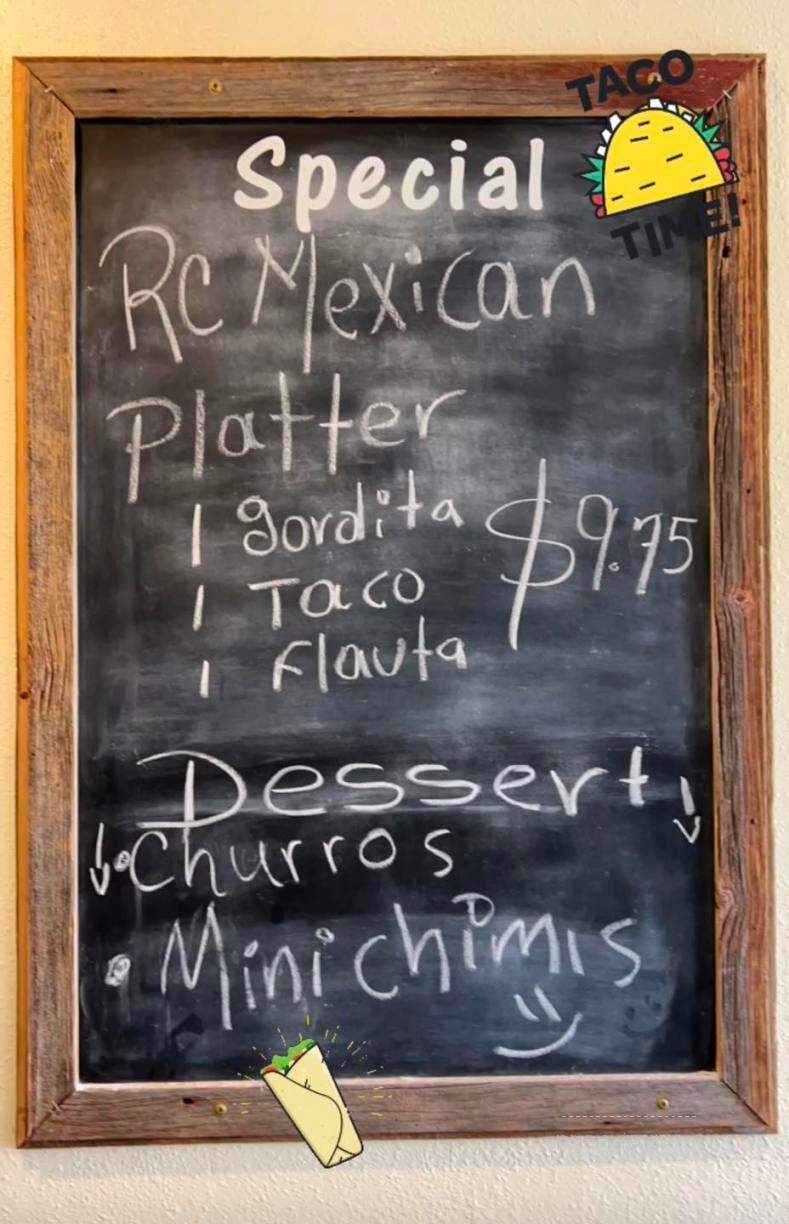 TACO
TIME!
Special
RC Mexican
Platter
1 gordita
$9.75
1 Taco
1 Flauta
Dessert
Churros
Mini chimis